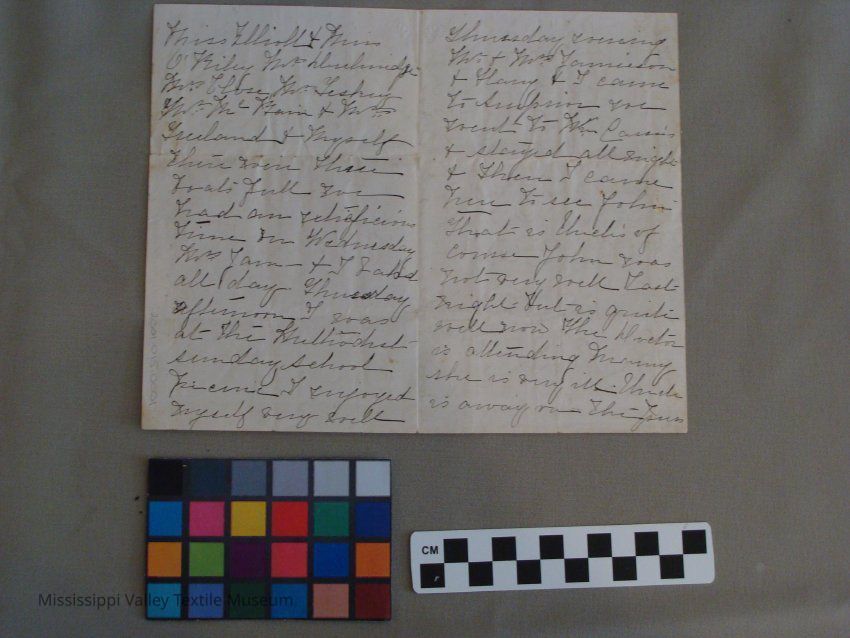 Miss Elliott & Miss
O'Riley Mr
Mrs Close Mr
Mr Mc & Mrs
Freeland & Myself
there were three
boats full we
had an
time on Wednesday
Mrs Jam & I
all day. Thursday
afternoon I was
at the Methodist
sunday school
Picnic I enjoyed
myself very well
Thursday evening
Mr & Mrs Jamieson
& Harry & I came
to Arnprior we
went to Wm
& stayed all night
& then I came
here to see John
That is Uncle's of
course John was
not very well last
night but is quite
well now the Doctor
is attending
she is very ill. Uncle
is away on the
CM
Mississippi Valley Textile Museum